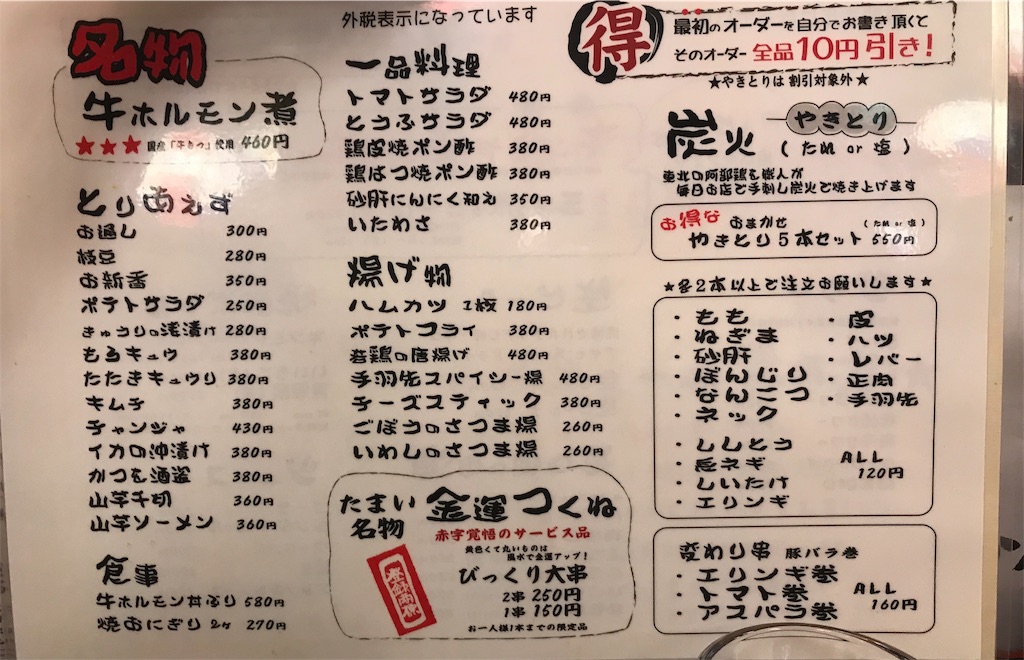 外税表示になっています
名物
牛ホルモン煮
★★★ 国産「牛もつ」使用 460円
とりあえず
お通し 300円
枝豆 280円
お新香 350円
ポテトサラダ 250円
きゅうりの浅漬け 280円
もろキュウ 380円
たたきキュウリ 380円
キムチ 380円
チャンジャ 430円
イカの沖漬け 380円
かつを酒盗 380円
山芋千切 360円
山芋ソーメン 360円
食事
牛ホルモン丼ぶり 580円
焼おにぎり 2ヶ 270円
一品料理
トマトサラダ 480円
とうふサラダ 480円
鶏皮焼ポン酢 380円
鶏はつ焼ポン酢 380円
砂肝にんにく和え 350円
いたわさ 380円
揚げ物
ハムカツ 1枚 180円
ポテトフライ 380円
若鶏の唐揚げ 480円
手羽先スパイシー揚 480円
チーズスティック 380円
ごぼうのさつま揚 260円
いわしのさつま揚 260円
たまい名物 金運つくね
赤字覚悟のサービス品
黄色くて丸いものは
風水で金運アップ!
びっくり大串
2串 250円
1串 150円
お一人様1本までの限定品
得
最初のオーダーを自分でお書き頂くと
そのオーダー 全品10円引き!
★やきとりは割引対象外★
炭火 やきとり
(たれ or 塩)
東北の阿部鶏を職人が
毎日お店で手刺し炭火で焼き上げます
お得な おまかせ (たれ or 塩)
やきとり5本セット 550円
★各2本以上で注文お願いします★
・もも
・ねぎま
・砂肝
・ぼんじり
・なんこつ
・ネック
・皮
・ハツ
・レバー
・正肉
・手羽先
・ししとう
・長ネギ
・しいたけ
・エリンギ
ALL
120円
変わり串 豚バラ巻
・エリンギ巻
・トマト巻
・アスパラ巻
ALL
160円